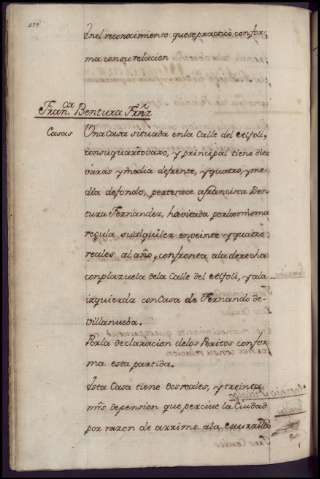 En el reconocimiento que se practicó confor,
ma con su relacion
Fran.ca Bentura Frñz
Casas Una Casa situada en la Calle del
con su quarto vaxo, y principal tiene diez
varas y media defrente, y quatro, y me-
dia defondo, pertenece afrancisca Ben-
tura Fernandez, havitada por la misma
regula su alquiler en veinte y quatro
reales al año, confronta ala derecha
con plazuela dela Calle del y ala
izquierda con Casa de Fernando de
Villanueba.
Por la declaracion delos Peritos confor-
ma esta partida.
Esta Casa tiene dos reales, y treinta
mrs. depension que percive la Ciudad
por razon de arrime ala